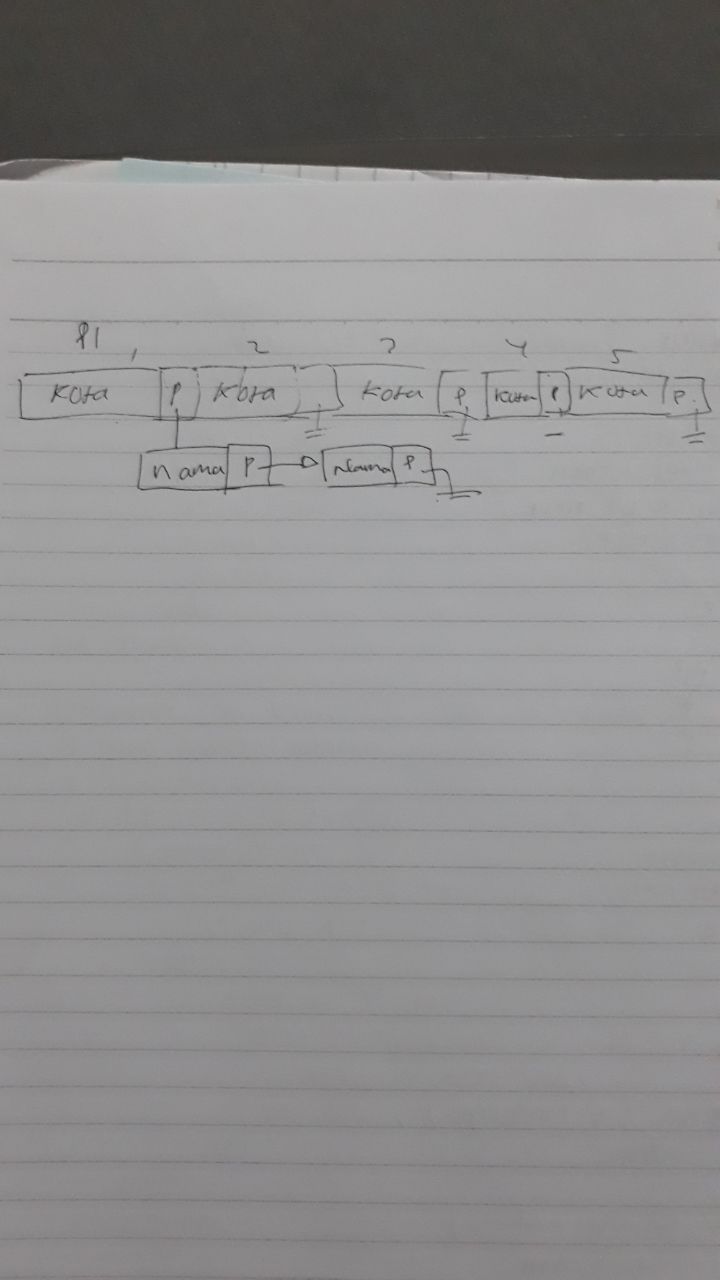 P1 1 2 3 4 5
Kota P Kota Kota P Kota P Kota P
Nama P Nama P